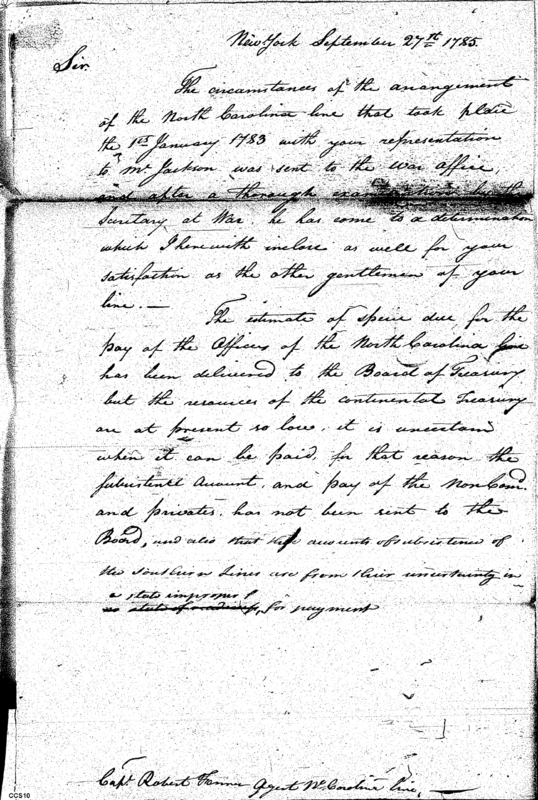 New York September 27th 1785.
Sir.
The circumstances of the arrangement
of the North Carolina line that took place
the 1st January 1783 with your representation
to Mr Jackson was sent to the War office,
and after a thorough examination by the
Secretary at War, he has come to a determination
which I herewith inclose as well for your
satisfaction as the other gentlemen of your
line. —
The estimate of specie due for the
pay of the Officers of the North Carolina line
has been delivered to the Board of Treasury
but the resources of the continental Treasury
are at present so low, it is uncertain
when it can be paid, for that reason the
subsistence Account, and pay of the Non Comd.
and privates, has not been sent to the
Board, and also that the accounts of subsistence of
the southern Lines are from their uncertainty in
a state improper
no state of readiness, for payment
Capt. Robert Fenner Agent No. Carolina line, —
CCS10